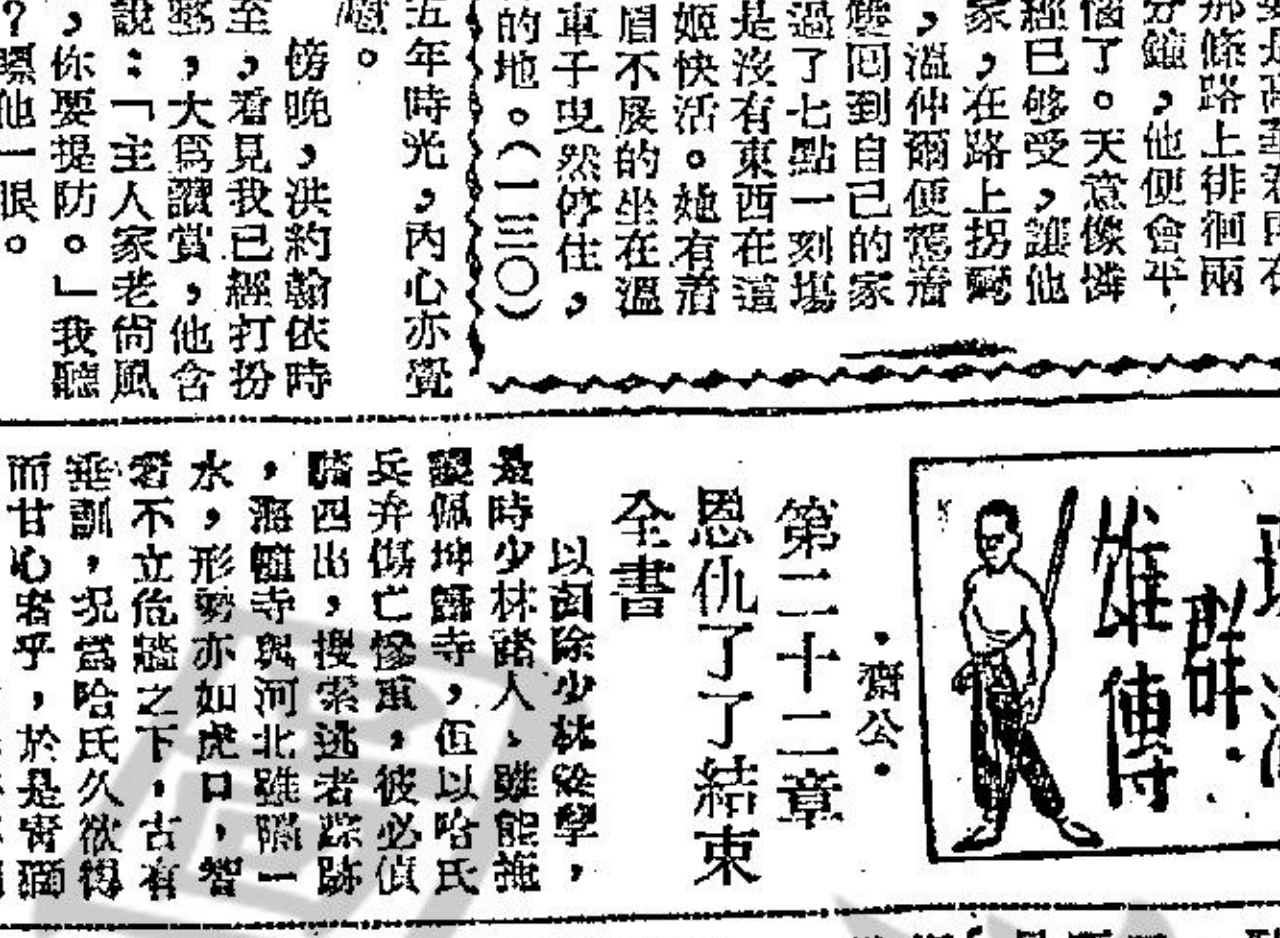 那條路上徘徊兩
分鐘，他便會平
惱了。天意像憐
經已够受，讓他
家，在路上拐彎
，溫仲爾便駕着
回到自己的家
過了七點一刻
是沒有東西在這
姬快活。她有着
眉不展的坐在溫
車子戛然停住，
的地。（一三〇）
五年時光，內心亦覺
。
傍晚，洪約翰依時
至，看見我已經打扮
，大爲讚賞，他含
說：「主人家老尙風
，你要提防。」我聽
？瞟他一眼。
群
雄傳
·齋公·
第二十二章
恩仇了了結束
全書
以剷除少林
是時少林諸人，雖能掩
護佩坤歸寺，但以哈氏
兵弁傷亡慘重，彼必偵
騎四出，搜索逃者踪跡
，海幢寺與河北雖隔一
水，形勢亦如虎口，智
者不立危牆之下，古有
垂訓，況當哈氏久欲得
而甘心者乎，於是